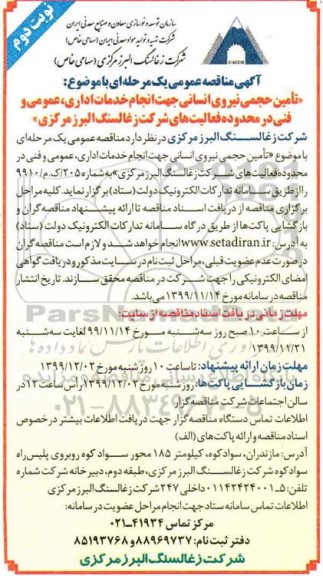 نوبت دوم
سازمان توسعه و نوسازی معادن و صنایع معدنی ایران
شرکت تهیه و تولید مواد معدنی ایران (سهامی خاص)
شرکت زغالسنگ البرز مرکزی (سهامی خاص)
آگهی مناقصه عمومی یک مرحله ای با موضوع:
«تأمین حجمی نیروی انسانی جهت انجام خدمات اداری، عمومی و
فنی در محدوده فعالیت های شرکت زغالسنگ البرز مرکزی»
شرکت زغالسنگ البرز مرکزی در نظر دارد مناقصه عمومی یک مرحله ای
با موضوع «تأمین حجمی نیروی انسانی جهت انجام خدمات اداری، عمومی و فنی در
محدوده فعالیت های شرکت زغالسنگ البرز مرکزی» به شماره ۲۰۵/ک.م/۹۹۱۰
را از طریق سامانه تدارکات الکترونیک دولت (ستاد) برگزار نماید. کلیه مراحل
برگزاری مناقصه از دریافت اسناد مناقصه تا ارائه پیشنهاد مناقصه گران و
بازگشایی پاکت ها از طریق درگاه سامانه تدارکات الکترونیک دولت (ستاد)
به آدرس: www.setadiran.ir انجام خواهد شد و لازم است مناقصه گران
در صورت عدم عضویت قبلی، مراحل ثبت نام در سایت مذکور و دریافت گواهی
امضای الکترونیکی را جهت شرکت در مناقصه محقق سازند. تاریخ انتشار
مناقصه در سامانه مورخ ۱۳۹۹/۱۱/۱۴ می باشد.
مهلت زمانی دریافت اسناد مناقصه از سایت:
از ساعت ۱۰ صبح روز سه شنبه مورخ ۹۹/۱۱/۱۴ لغایت سه شنبه
۱۳۹۹/۱۱/۲۱
مهلت زمان ارائه پیشنهاد: تا ساعت ۱۰ روز شنبه مورخ ۱۳۹۹/۱۲/۰۲
زمان بازگشایی پاکت ها: روز شنبه مورخ ۱۳۹۹/۱۲/۰۲ رأس ساعت ۱۲ در
سالن اجتماعات شرکت مناقصه گزار
اطلاعات تماس دستگاه مناقصه گزار جهت دریافت اطلاعات بیشتر در خصوص
اسناد مناقصه و ارائه پاکت های (الف)
آدرس: مازندران، سوادکوه، کیلومتر ۱۸۵ محور سواد کوه روبروی پلیس راه
سوادکوه شرکت زغالسنگ البرز مرکزی، طبقه دوم، دبیرخانه شرکت شماره
تلفن: ۵-۰۱۱۴۲۴۲۴۰۰۱ داخلی ۲۴۷ شرکت زغالسنگ البرز مرکزی
اطلاعات تماس سامانه ستاد جهت انجام مراحل عضویت در سامانه:
مرکز تماس ۴۱۹۳۴-۰۲۱
دفتر ثبت نام: ۸۸۹۶۹۷۳۷ و ۸۵۱۹۳۷۶۸
شرکت زغالسنگ البرز مرکزی